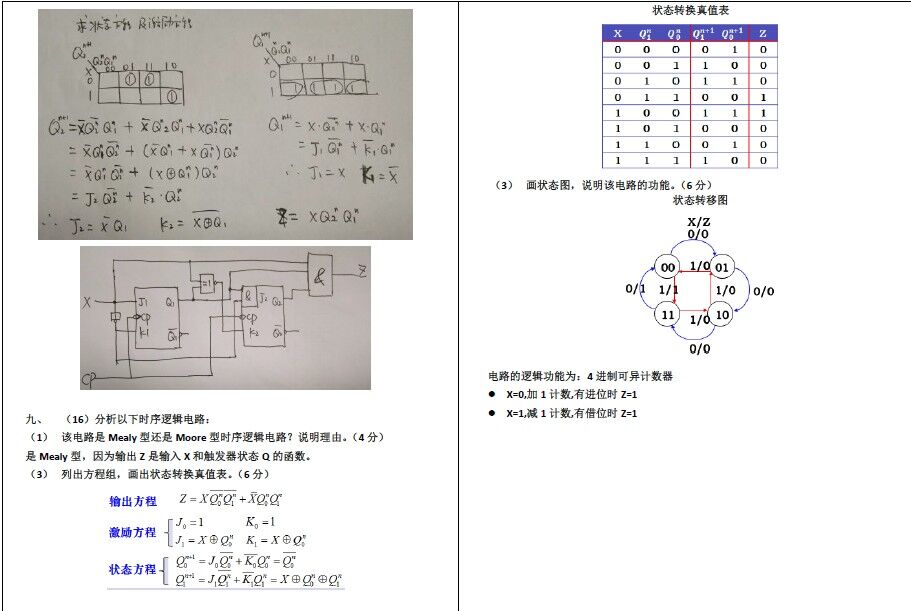 求状态方程 及激励方程
Q₂ⁿ⁺¹
X Q₂ⁿQ₁ⁿ 00 01 11 10
0 1 1
1 1
Q₁ⁿ⁺¹
X Q₂ⁿQ₁ⁿ 00 01 11 10
0
1 1 1 1 1
Q₂ⁿ⁺¹ = X̅Q̅₂ⁿQ₁ⁿ + X̅Q₂ⁿQ₁ⁿ + XQ₂ⁿQ̅₁ⁿ
= X̅Q₁ⁿQ̅₂ⁿ + (X̅Q₁ⁿ + XQ̅₁ⁿ)Q₂ⁿ
= X̅Q₁ⁿQ̅₂ⁿ + (X⊕Q₁ⁿ)Q₂ⁿ
= J₂Q̅₂ⁿ + K̅₂·Q₂ⁿ
∴ J₂ = X̅Q₁ K₂ = X̅⊕̅Q̅₁
Q₁ⁿ⁺¹ = X·Q̅₁ⁿ + X·Q₁ⁿ
= J₁Q̅₁ⁿ + K̅₁·Q₁ⁿ
∴ J₁ = X K₁ = X̅
Z = XQ₂ⁿQ₁ⁿ
X
CP
J₁ Q₁
CP
K₁ Q̅₁
=1
& J₂ Q₂
CP
K₂ Q̅₂
&
Z
九、 （16）分析以下时序逻辑电路：
（1） 该电路是 Mealy 型还是 Moore 型时序逻辑电路？说明理由。（4 分）
是 Mealy 型，因为输出 Z 是输入 X 和触发器状态 Q 的函数。
（3） 列出方程组，画出状态转换真值表。（6 分）
输出方程 Z = XQ̅₀ⁿQ̅₁ⁿ + X̅Q₀ⁿQ₁ⁿ
激励方程 J₀ = 1 K₀ = 1
J₁ = X ⊕ Q₀ⁿ K₁ = X ⊕ Q₀ⁿ
状态方程 Q₀ⁿ⁺¹ = J₀Q̅₀ⁿ + K̅₀Q₀ⁿ = Q̅₀ⁿ
Q₁ⁿ⁺¹ = J₁Q̅₁ⁿ + K̅₁Q₁ⁿ = X ⊕ Q₀ⁿ ⊕ Q₁ⁿ
状态转换真值表
X Q₁ⁿ Q₀ⁿ Q₁ⁿ⁺¹ Q₀ⁿ⁺¹ Z
0 0 0 0 1 0
0 0 1 1 0 0
0 1 0 1 1 0
0 1 1 0 0 1
1 0 0 1 1 1
1 0 1 0 0 0
1 1 0 0 1 0
1 1 1 1 0 0
（3） 画状态图，说明该电路的功能。（6 分）
状态转移图
X/Z
0/0
00 1/0 01
0/1 1/1 1/0 0/0
11 1/0 10
0/0
电路的逻辑功能为：4 进制可异计数器
● X=0,加 1 计数,有进位时 Z=1
● X=1,减 1 计数,有借位时 Z=1